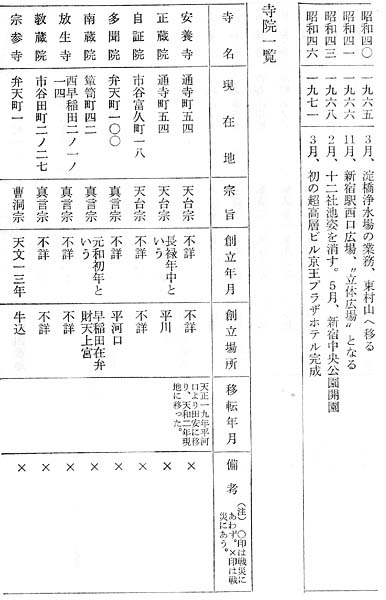 昭和四〇 一九六五 3月、淀橋浄水場の業務、東村山へ移る
昭和四一 一九六六 11月、新宿駅西口広場、〝立体広場〟となる
昭和四三 一九六八 2月、十二社池姿を消す。5月、新宿中央公園開園
昭和四六 一九七一 3月、初の超高層ビル京王プラザホテル完成
寺院一覧
寺名 現在地 宗旨 創立年月 創立場所 移転年月 備考
(注) 〇印は戦災に
あわず。×印は戦
災にあう。
安養寺 通寺町五四 天台宗 不詳 不詳
天正一九年平河
口より田安に移
り、天和二年現
地に移った。
×
正蔵院 通寺町五四 天台宗 長禄年中と
いう
平川 ×
自証院 市谷富久町一八 天台宗 不詳 不詳 ×
多聞院 弁天町一〇〇 真言宗 不詳 平河口 ×
南蔵院 箪笥町四二 真言宗 元和初年と
いう
早稲田在弁
財天上宮
×
放生寺 西早稲田二ノ一ノ
一四
真言宗 不詳 不詳 ×
教蔵院 市谷田町二ノ二七 真言宗 不詳 不詳 ×
宗参寺 弁天町一 曹洞宗 天文一三年 牛込 ×